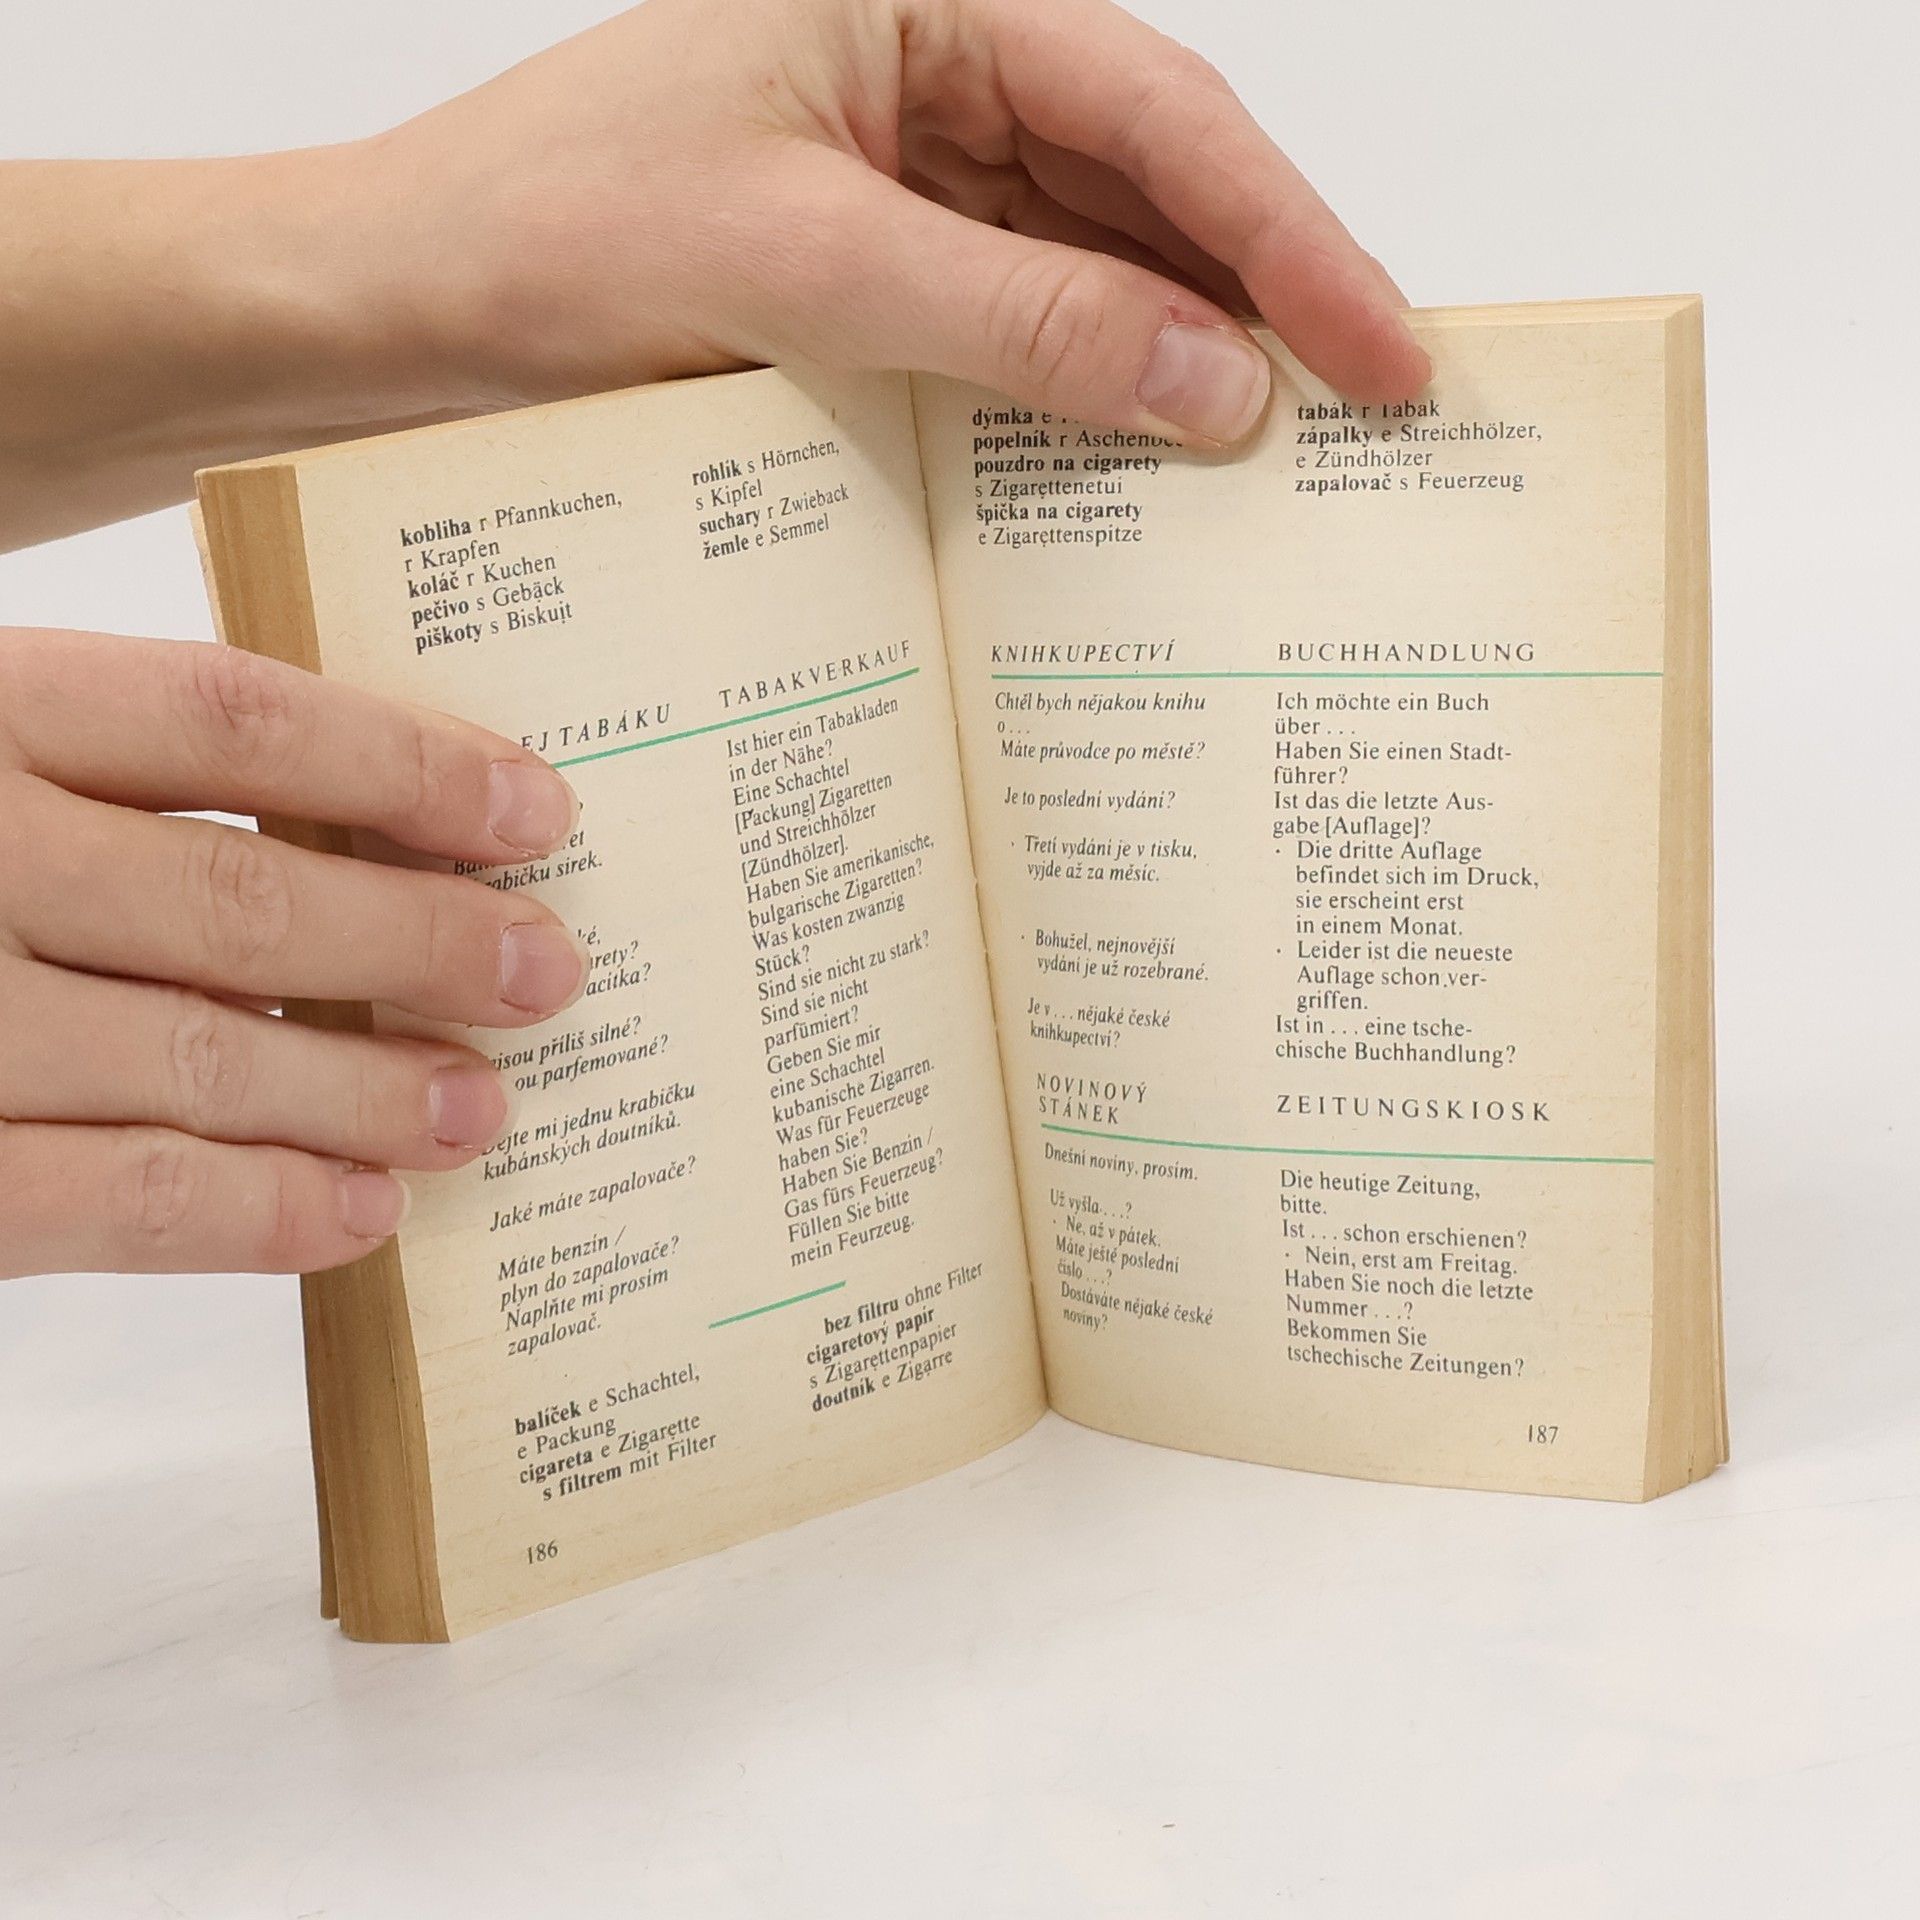 kobliha r Pfannkuchen,
r Krapfen
koláč r Kuchen
pečivo s Gebäck
piškoty s Biskuit
rohlík s Hörnchen,
s Kipfel
suchary r Zwieback
žemle e Semmel
TABÁKU
TABAKVERKAUF
sirek.
příliš silné?
parfemované?
mi jednu krabičku
kubánských doutníků.
Jaké máte zapalovače?
Máte benzín /
plyn do zapalovače?
Naplňte mi prosím
zapalovač.
Ist hier ein Tabakladen
in der Nähe?
Eine Schachtel
[Packung] Zigaretten
und Streichhölzer
[Zündhölzer].
Haben Sie amerikanische,
bulgarische Zigaretten?
Was kosten zwanzig
Stück?
Sind sie nicht zu stark?
Sind sie nicht
parfümiert?
Geben Sie mir
eine Schachtel
kubanische Zigarren.
Was für Feuerzeuge
haben Sie?
Haben Sie Benzin /
Gas fürs Feuerzeug?
Füllen Sie bitte
mein Feurzeug.
balíček e Schachtel,
e Packung
cigareta e Zigarette
s filtrem mit Filter
bez filtru ohne Filter
cigaretový papír
s Zigarettenpapier
doutník e Zigarre
186
dýmka e
popelník r
pouzdro na cigarety
s Zigarettenetui
špička na cigarety
e Zigarettenspitze
tabák r Tabak
zápalky e Streichhölzer,
e Zündhölzer
zapalovač s Feuerzeug
KNIHKUPECTVÍ
BUCHHANDLUNG
Chtěl bych nějakou knihu
o...
Máte průvodce po městě?
Je to poslední vydání?
· Třetí vydání je v tisku,
vyjde až za měsíc.
· Bohužel, nejnovější
vydání je už rozebrané.
Je v... nějaké české
knihkupectví?
Ich möchte ein Buch
über...
Haben Sie einen Stadt-
führer?
Ist das die letzte Aus-
gabe [Auflage]?
· Die dritte Auflage
befindet sich im Druck,
sie erscheint erst
in einem Monat.
· Leider ist die neueste
Auflage schon ver-
griffen.
Ist in... eine tsche-
chische Buchhandlung?
NOVINOVÝ
STÁNEK
ZEITUNGSKIOSK
Dnešní noviny, prosím.
Už vyšla...?
· Ne, až v pátek.
Máte ještě poslední
číslo...?
Dostáváte nějaké české
noviny?
Die heutige Zeitung,
bitte.
Ist... schon erschienen?
· Nein, erst am Freitag.
Haben Sie noch die letzte
Nummer...?
Bekommen Sie
tschechische Zeitungen?
187